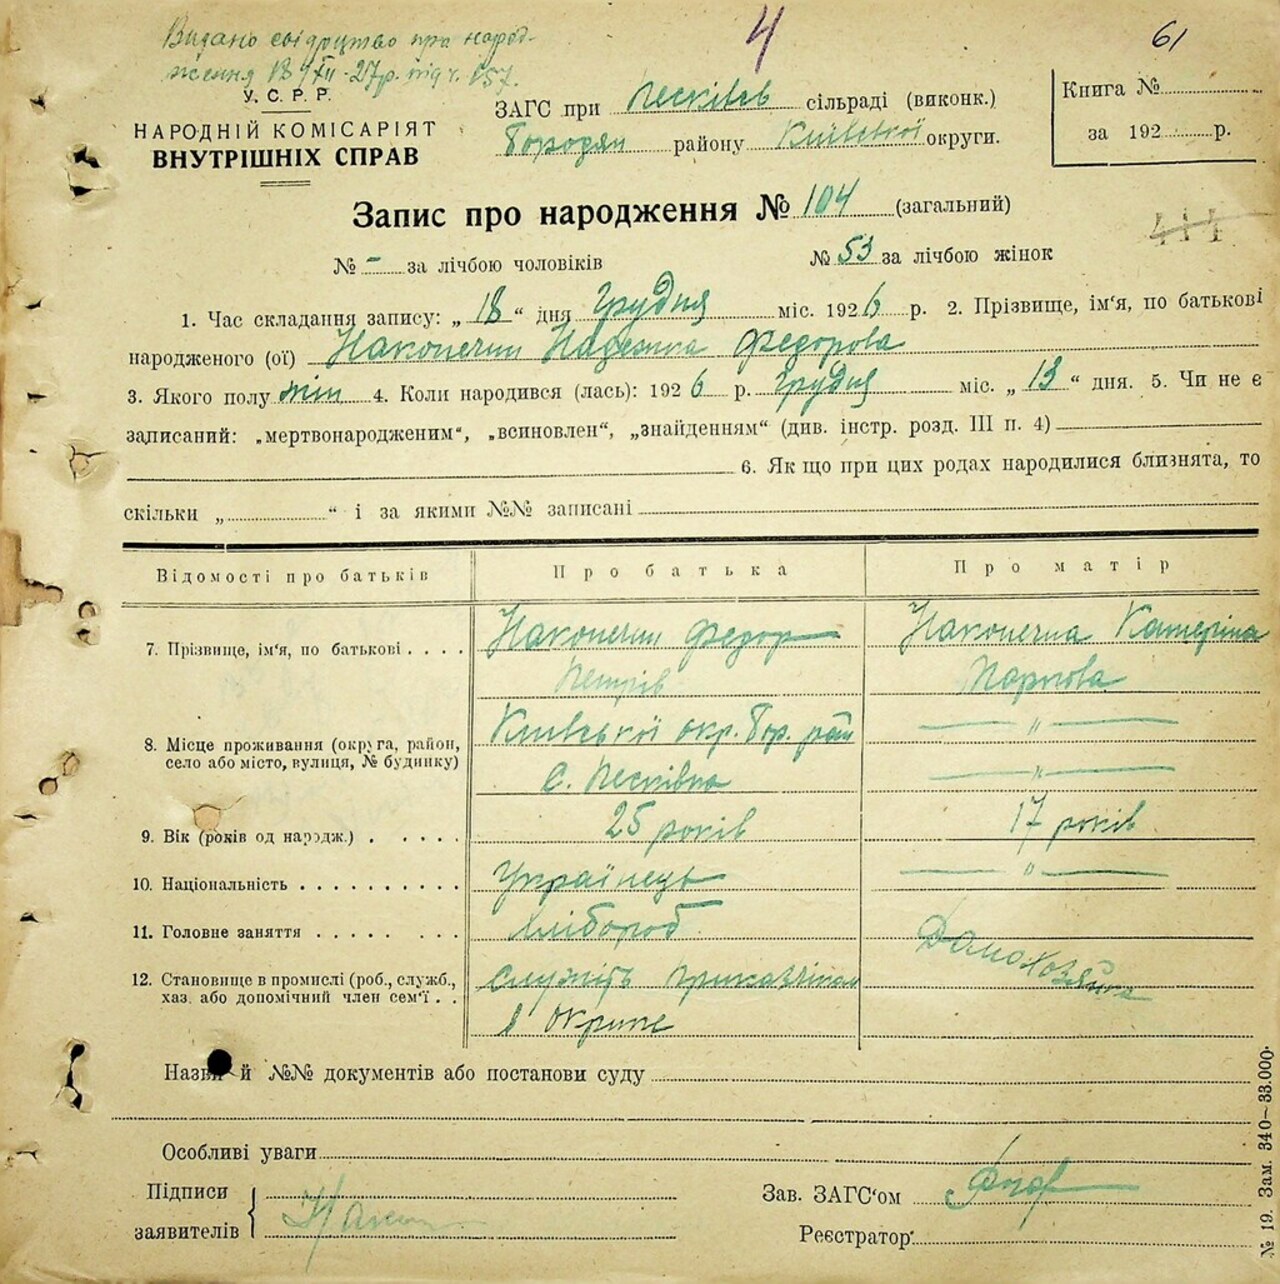 4
61
Видано свідоцтво про народ-
ження 18/XII-27р. під ч. 157.
У. С. Р. Р.
НАРОДНІЙ КОМІСАРІЯТ
ВНУТРІШНІХ СПРАВ
ЗАГС при Песківск сільраді (виконк.)
Бородян району Київської округи.
Книга №
за 192 р.
Запис про народження № 104 (загальний)
444
№ - за лічбою чоловіків № 53 за лічбою жінок
1. Час складання запису: „ 18 “ дня Грудня міс. 1926 р. 2. Прізвище, ім‘я, по батькові
народженого (ої) Наконечни Надежка Федорова
3. Якого полу жін 4. Коли народився (лась): 1926 р. Грудня міс. „ 13 “ дня. 5. Чи не є
записаний: „мертвонародженим“, „всиновлен“, „знайденням“ (див. інстр. розд. III п. 4)
6. Як що при цих родах народилися близнята, то
скільки „ “ і за якими №№ записані
Відомості про батьків Про батька Про матір
7. Прізвище, ім‘я, по батькові Наконечни Федор Наконечна Катеріна
Петрів
8. Місце проживання (округа, район, Київської окр. Бор. рай — " —
село або місто, вулиця, № будинку) с. Песківка — " —
9. Вік (років од народж.) 25 років 17 років
10. Національність Українець — " —
11. Головне заняття хлібороб Домохозяйка
12. Становище в промислі (роб., служб., служить приказчіком
хаз. або допомічний член сем‘ї в
Назви й №№ документів або постанови суду
Особливі уваги
Підписи
заявителів Након
Зав. ЗАГС‘ом
Реєстратор
№ 19. Зам. 340—33.000.